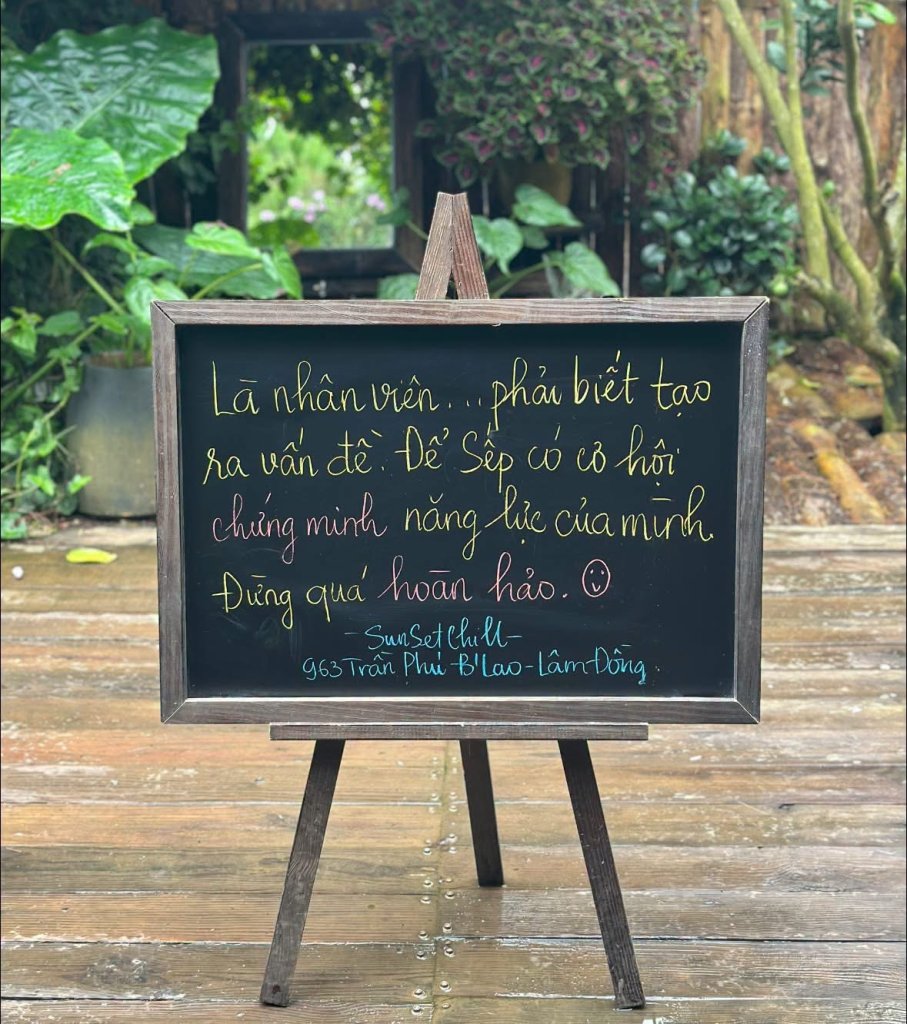 Là nhân viên... phải biết tạo
ra vấn đề. Để Sếp có cơ hội
chứng minh năng lực của mình.
Đừng quá hoàn hảo. ☺
- SunSet Chill -
963 Trần Phú - B'Lao - Lâm Đồng